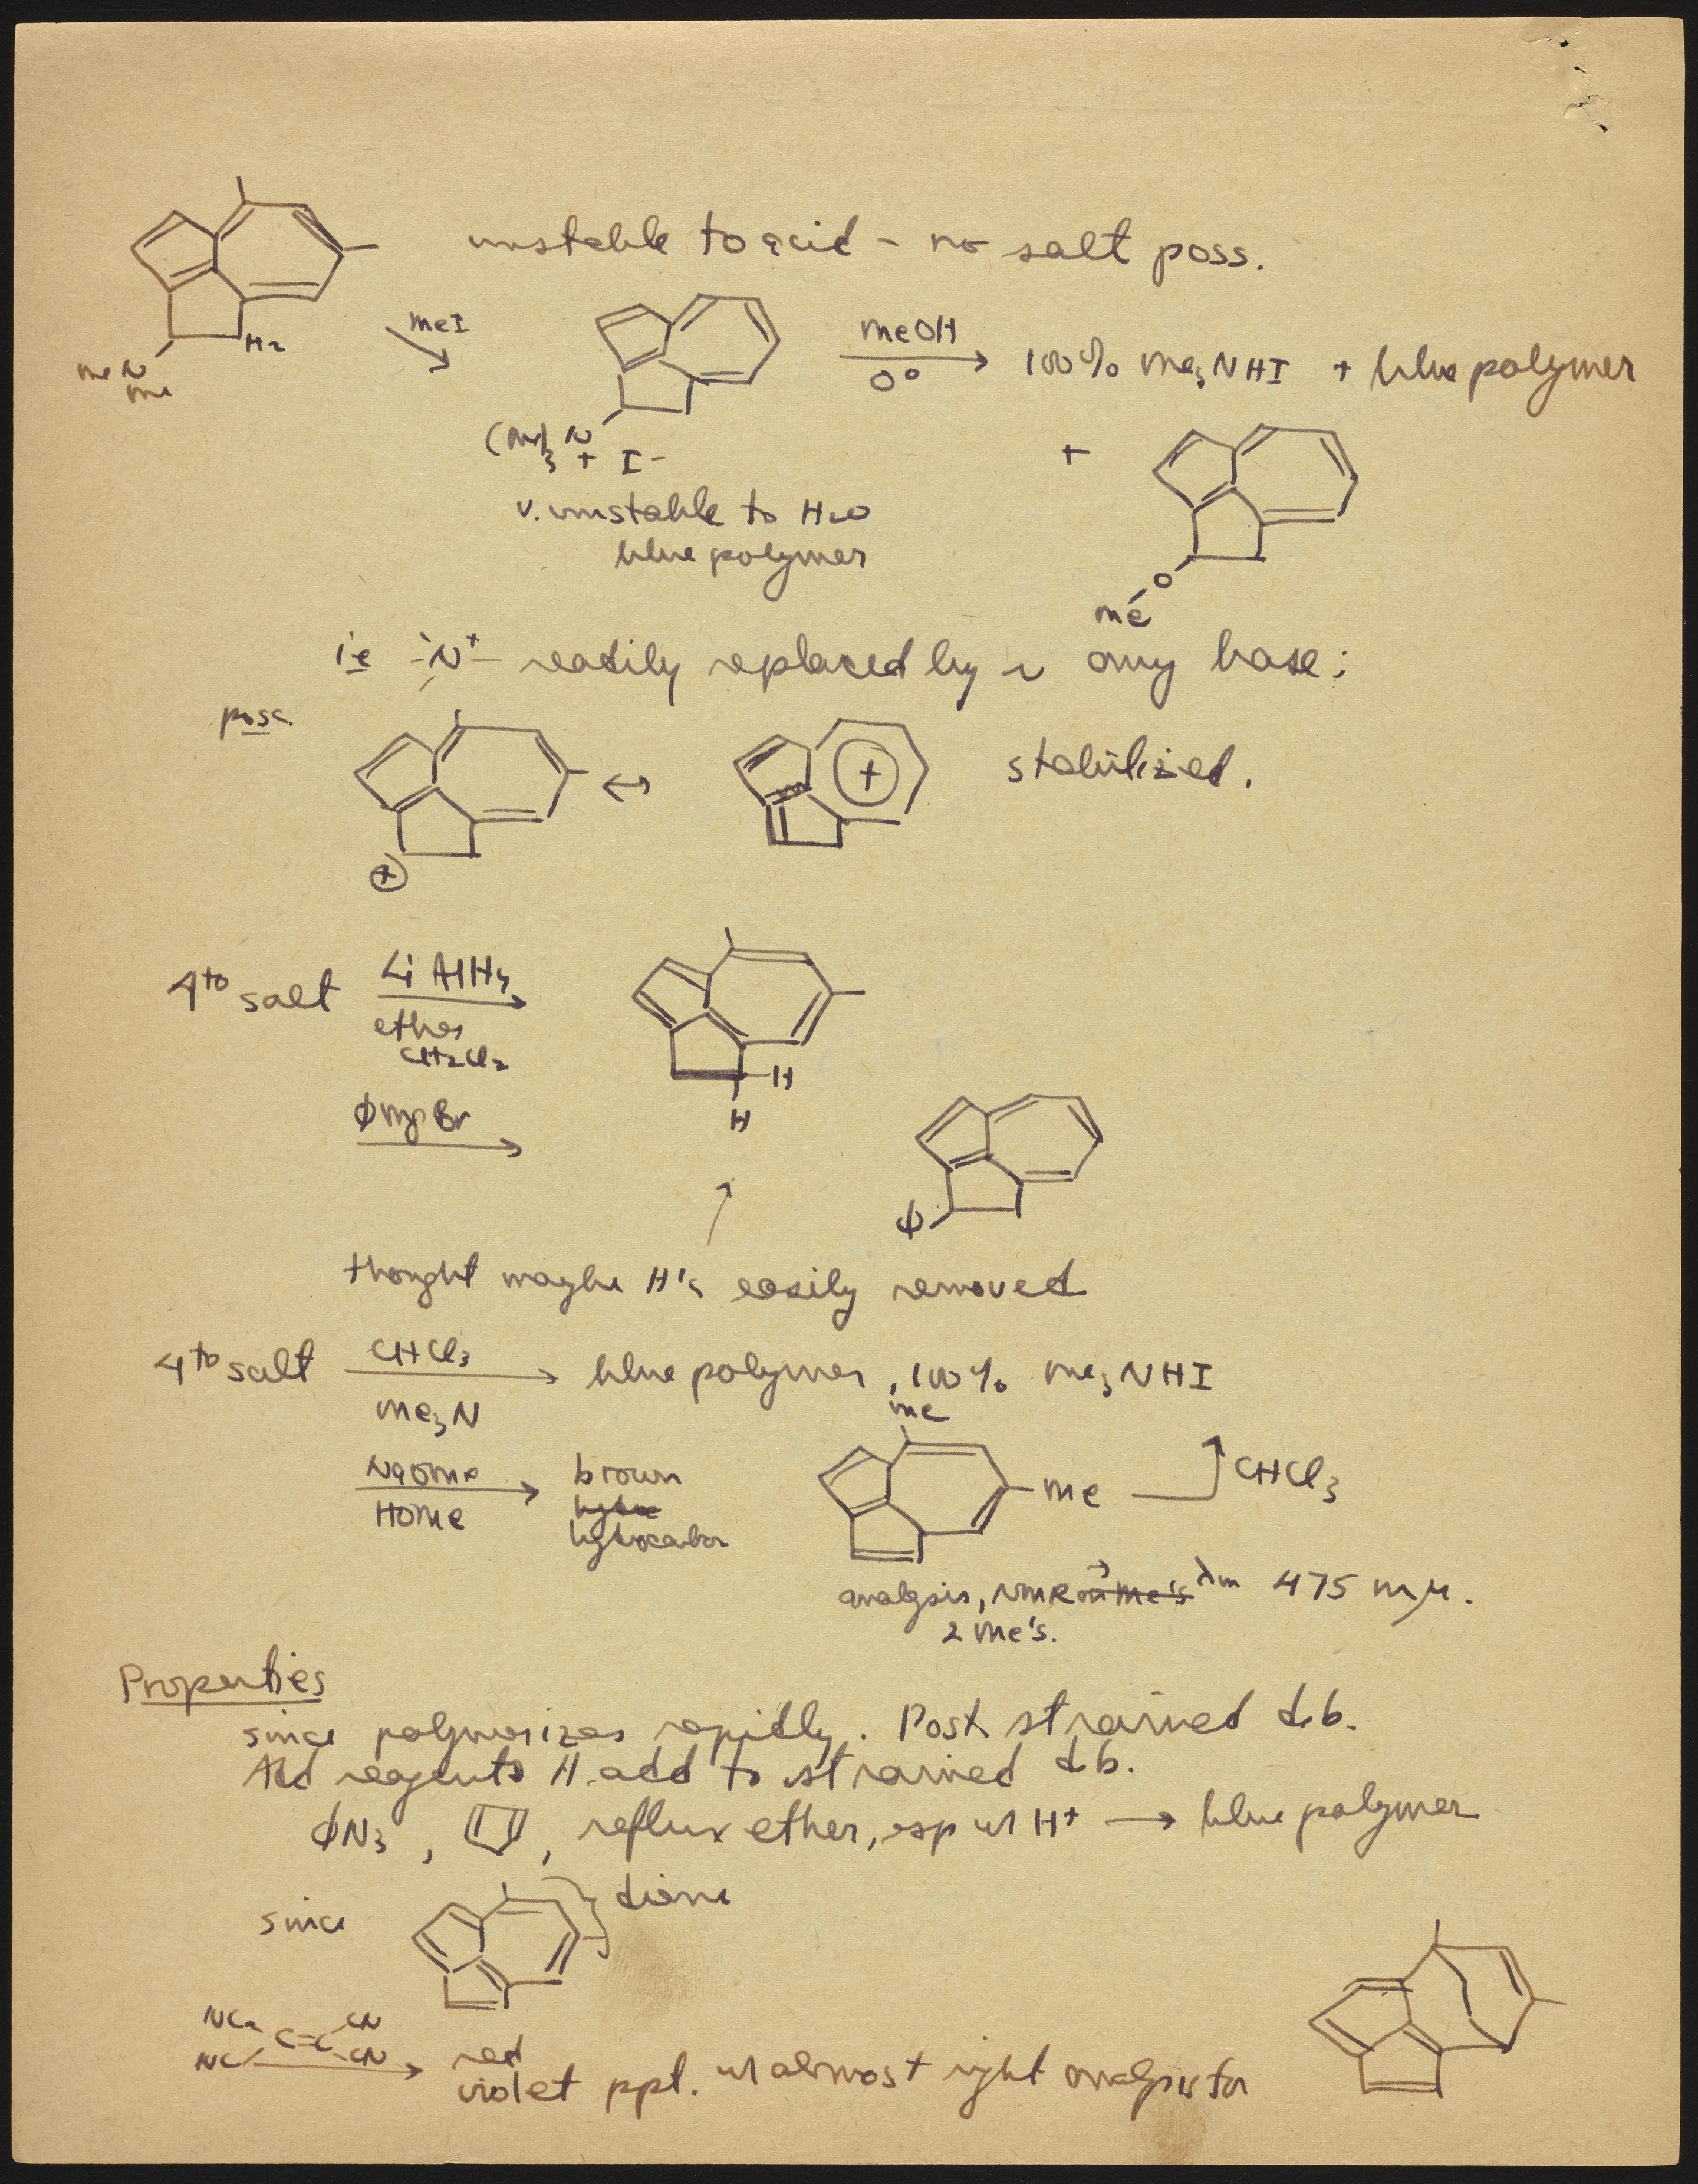 unstable to acid - no salt poss.
H2
Me N
Me
MeI
MeOH
0°
100% Me3NHI + blue polymer
(Me)3 N
+ I-
v. unstable to H2O
blue polymer
+
O
Me
ie -N+- readily replaced by any base:
poss.
+
↔
+
stabilized.
4to salt
LiAlH4
ether
CH2Cl2
H
H
ϕMgBr
ϕ
thought maybe H's easily removed
4to salt
CHCl3
Me3N
blue polymer, 100% Me3NHI
NaOMe
HOMe
brown
hydrocarbon
Me
Me
CHCl3
analysis, NMR → λm 475 mμ.
2 Me's.
Properties
since polymerizes rapidly. Poss strained d.b.
Add reagents add to strained d b.
ϕN3, , reflux ether, esp w H+ → blue polymer
since
diene
NC
NC
C=C
CN
CN
red
violet ppt. w almost right analysis for